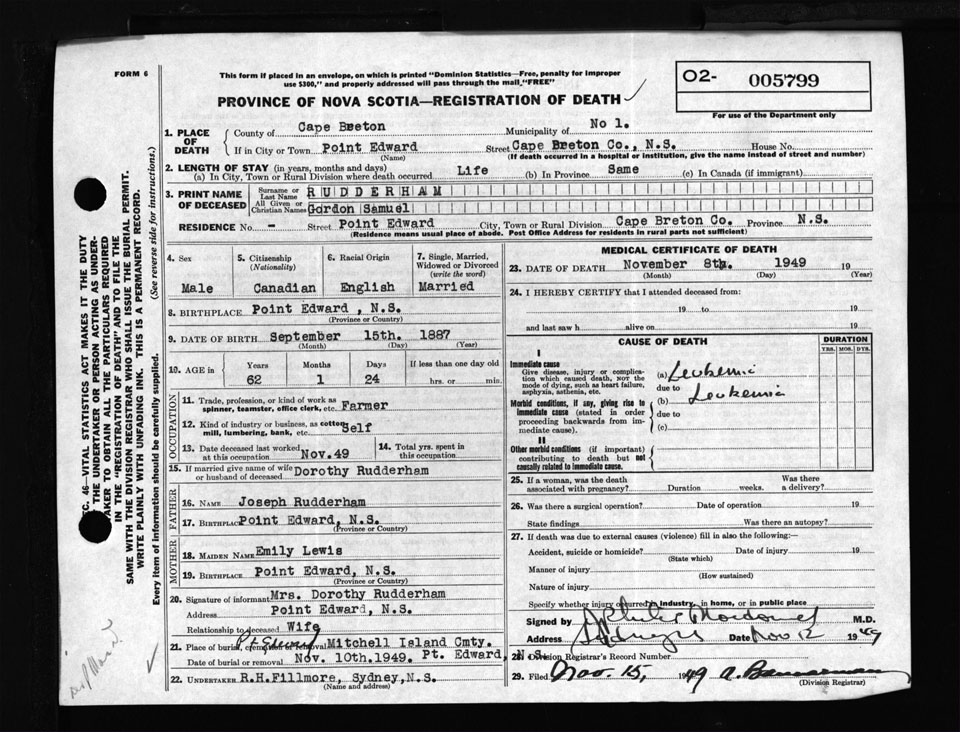 FORM 6
This form if placed in an envelope, on which is printed "Dominion Statistics—Free, penalty for improper
use $300," and properly addressed will pass through the mail "FREE"
O2- 005799
For use of the Department only
PROVINCE OF NOVA SCOTIA—REGISTRATION OF DEATH
1. PLACE OF DEATH
County of Cape Breton Municipality of No 1.
If in City or Town Point Edward Street Cape Breton Co., N.S. House No.
(Name) (If death occurred in a hospital or institution, give the name instead of street and number)
2. LENGTH OF STAY (in years, months and days)
(a) In City, Town or Rural Division where death occurred Life (b) In Province Same (c) In Canada (if immigrant)
3. PRINT NAME OF DECEASED
Surname or Last Name RUDDERHAM
All Given or Christian Names Gordon Samuel
RESIDENCE No. - Street Point Edward City, Town or Rural Division Cape Breton Co. Province N.S.
(Residence means usual place of abode. Post Office Address for residents in rural parts not sufficient)
4. Sex Male
5. Citizenship (Nationality) Canadian
6. Racial Origin English
7. Single, Married, Widowed or Divorced (write the word) Married
8. BIRTHPLACE Point Edward , N.S.
(Province or Country)
9. DATE OF BIRTH September 15th. 1887
(Month) (Day) (Year)
10. AGE in Years Months Days If less than one day old
62 1 24 hrs. or min.
OCCUPATION
11. Trade, profession, or kind of work as
spinner, teamster, office clerk, etc. Farmer
12. Kind of industry or business, as cotton
mill, lumbering, bank, etc. Self
13. Date deceased last worked
at this occupation Nov.49
14. Total yrs. spent in
this occupation
15. If married give name of wife
or husband of deceased Dorothy Rudderham
FATHER
16. NAME Joseph Rudderham
17. BIRTHPLACE Point Edward, N.S.
(Province or Country)
MOTHER
18. MAIDEN NAME Emily Lewis
19. BIRTHPLACE Point Edward, N.S.
(Province or Country)
20. Signature of informant Mrs. Dorothy Rudderham
Address Point Edward, N.S.
Relationship to deceased Wife
21. Place of burial, cremation or removal Mitchell Island Cmty.
Date of burial or removal Nov. 10th.1949. Pt. Edward, N.S.
22. UNDERTAKER R.H.Fillmore, Sydney,N.S.
(Name and address)
MEDICAL CERTIFICATE OF DEATH
23. DATE OF DEATH November 8th. 1949 19
(Month) (Day) (Year)
24. I HEREBY CERTIFY that I attended deceased from:
19 to 19
and last saw h alive on 19
CAUSE OF DEATH
DURATION
YRS. MOS. DYS.
I
Immediate cause
Give disease, injury or complication
which caused death, NOT the
mode of dying, such as heart failure,
asphyxia, asthenia, etc.
(a) Leukemia
due to
Morbid conditions, if any, giving rise to
immediate cause (stated in order
proceeding backwards from immediate
cause).
(b) Leukemia
due to
(c)
II
Other morbid conditions (if important)
contributing to death but not
causally related to immediate cause.
25. If a woman, was the death
associated with pregnancy? Duration weeks. Was there
a delivery?
26. Was there a surgical operation? Date of operation 19
State findings Was there an autopsy?
27. If death was due to external causes (violence) fill in also the following:—
Accident, suicide or homicide? Date of injury 19
(State which)
Manner of injury
(How sustained)
Nature of injury
Specify whether injury occurred in industry, in home, or in public place
Signed by M.D.
Address Sydney Date Nov 12 1949
28. Division Registrar's Record Number
29. Filed Nov. 15, 1949
(Division Registrar)
SEC. 46—VITAL STATISTICS ACT MAKES IT THE DUTY
OF THE UNDERTAKER OR PERSON ACTING AS UNDERTAKER
TO OBTAIN ALL THE PARTICULARS REQUIRED
IN THE "REGISTRATION OF DEATH" AND TO FILE THE
SAME WITH THE DIVISION REGISTRAR WHO SHALL ISSUE THE BURIAL PERMIT.
WRITE PLAINLY WITH UNFADING INK. THIS IS A PERMANENT RECORD.
(See reverse side for instructions.)
Every item of information should be carefully supplied.